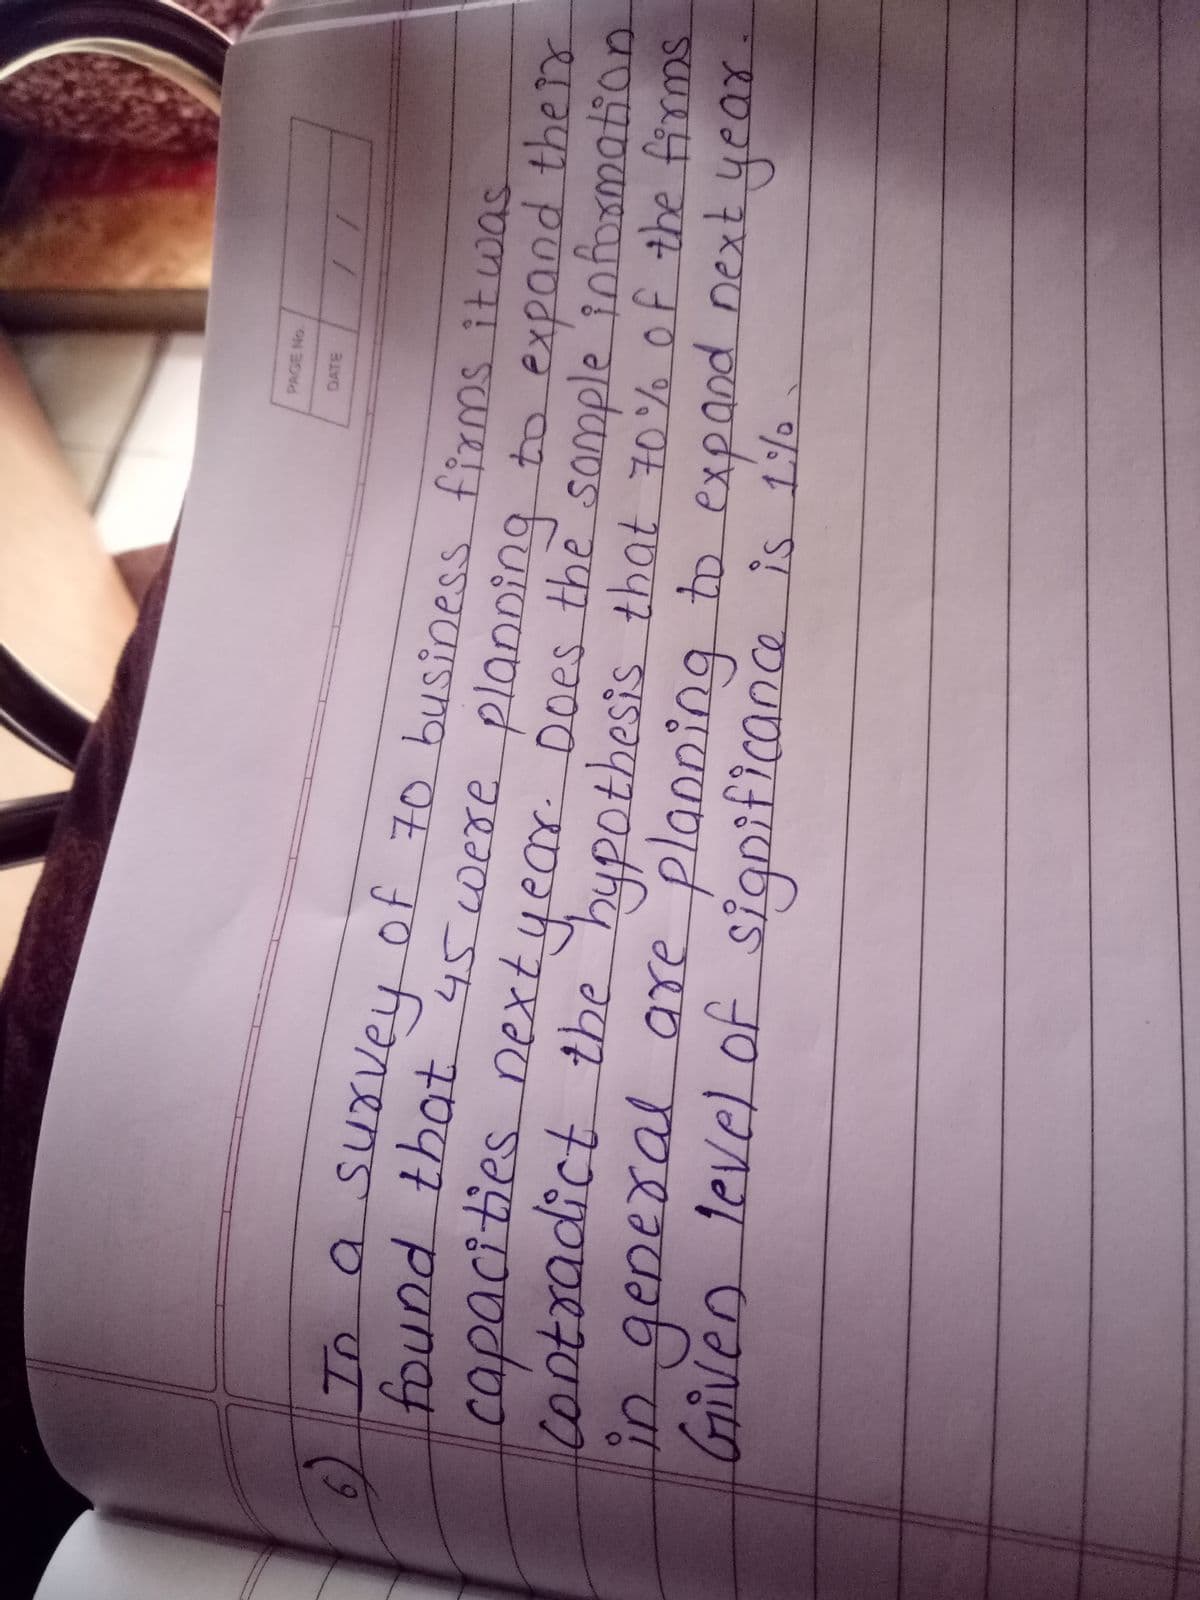 PAGE No.
DATE / /
6) In a survey of 70 business firms it was
found that 45 were planning to expand their
capacities next year. Does the sample information
contradict the hypothesis that 70% of the firms
in general are planning to expand next year.
Given level of significance is 1%.